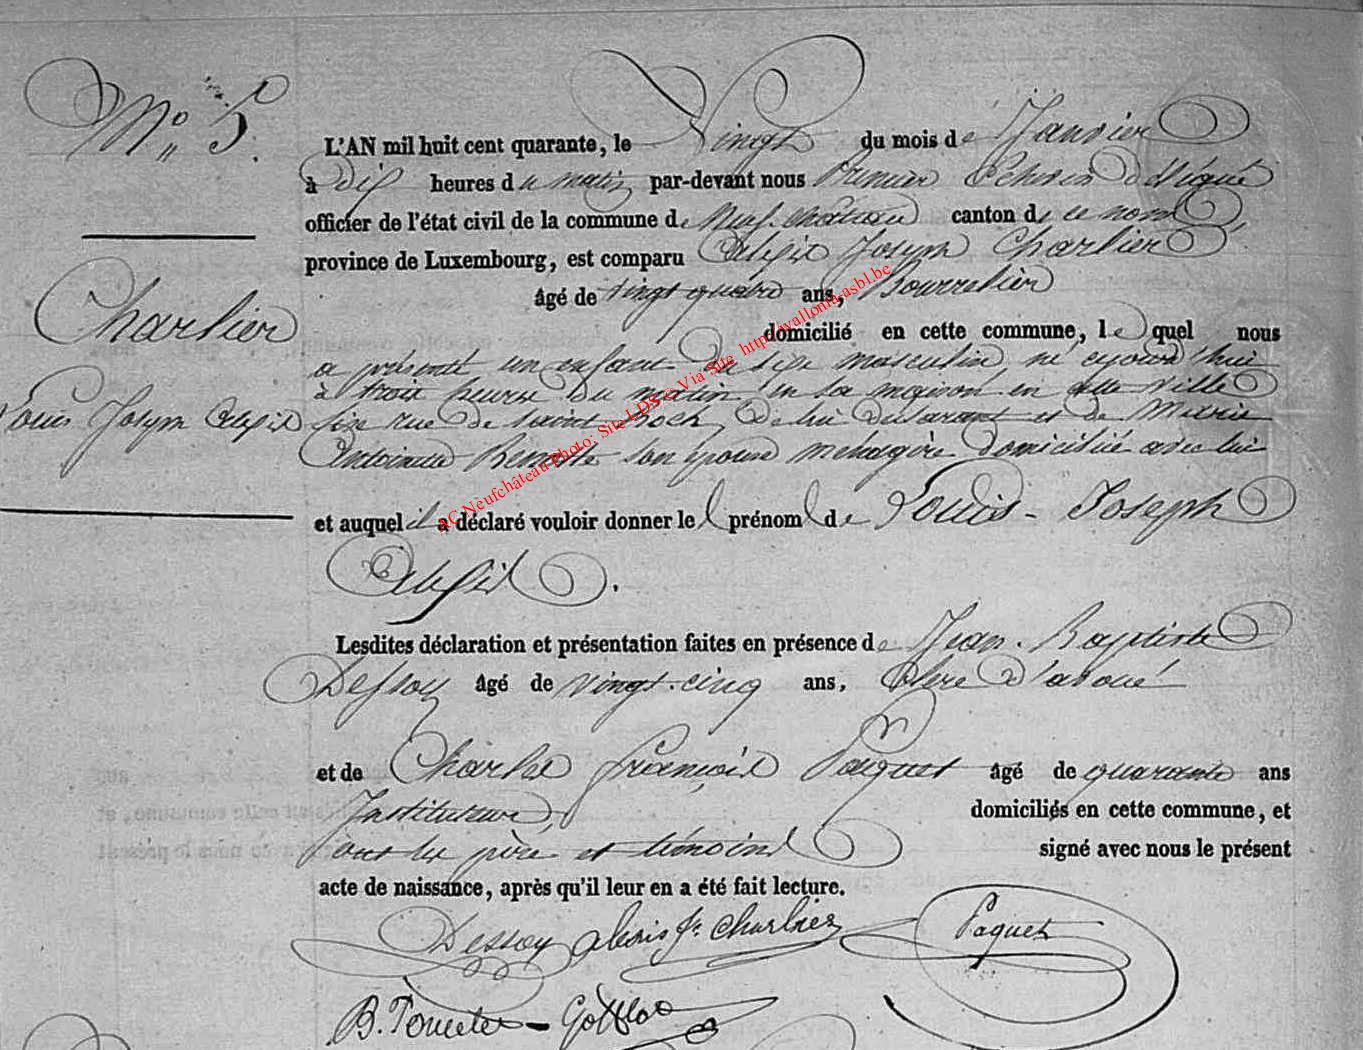 N° 5.
L'AN mil huit cent quarante, le Vingt du mois de Janvier
à dix heures du matin par-devant nous Premier Echevin Délégué
officier de l'état civil de la commune de Neufchâteau canton de ce nom
province de Luxembourg, est comparu Alexis Joseph Charlier
âgé de vingt quatre ans, Bourrelier
domicilié en cette commune, lequel nous
a présenté un enfant du sexe masculin né cejourd'hui
à trois heures du matin en sa maison en cette ville
sise rue de Saint Roch, de lui déclarant et de Marie
Antoinette son épouse ménagère domiciliée avec lui
et auquel il a déclaré vouloir donner le prénom de Louis-Joseph
Alexis.
Charlier
Louis Joseph Alexis
Lesdites déclaration et présentation faites en présence de Jean-Baptiste
Dessoy âgé de vingt-cinq ans, Clerc d'avoué
et de Charles François Paquet âgé de quarante ans
Instituteur, domiciliés en cette commune, et
ont les père et témoins signé avec nous le présent
acte de naissance, après qu'il leur en a été fait lecture.
Dessoy alexis Jh Charlier Paquet
AC Neufchâteau Photo: Site LDS © Via Site http://wallonia-asbl.be